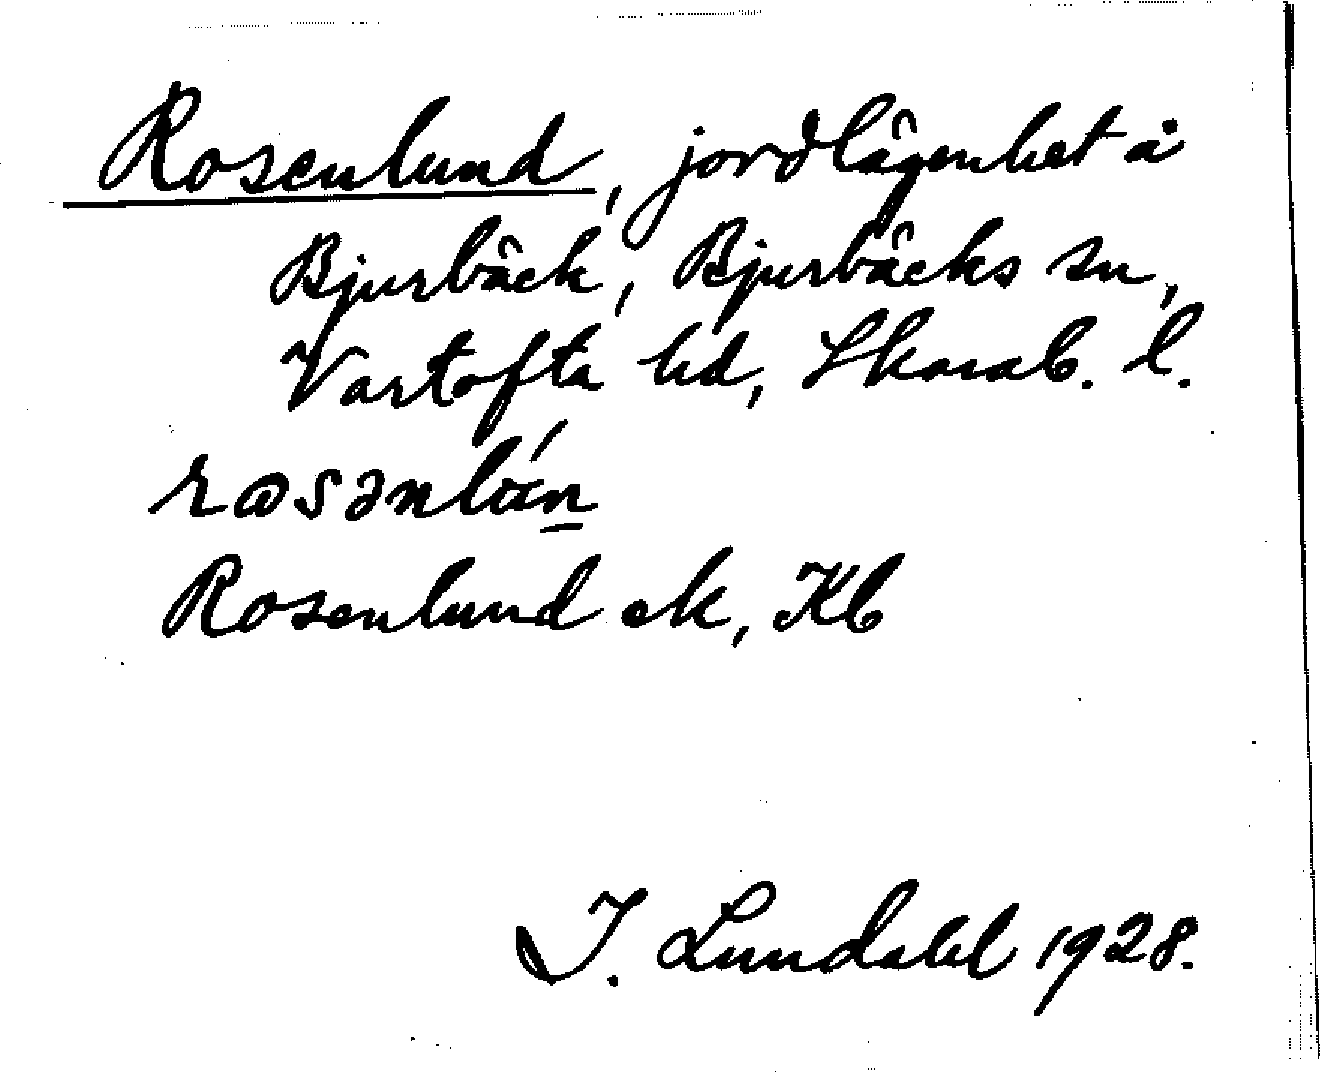 Rosenlund, jordlägenhet å
Bjurbäck, Bjurbäcks sn,
Vartofta hd, Skarab. l.
Rosenlund ek, Kb
I. Lundahl 1928.